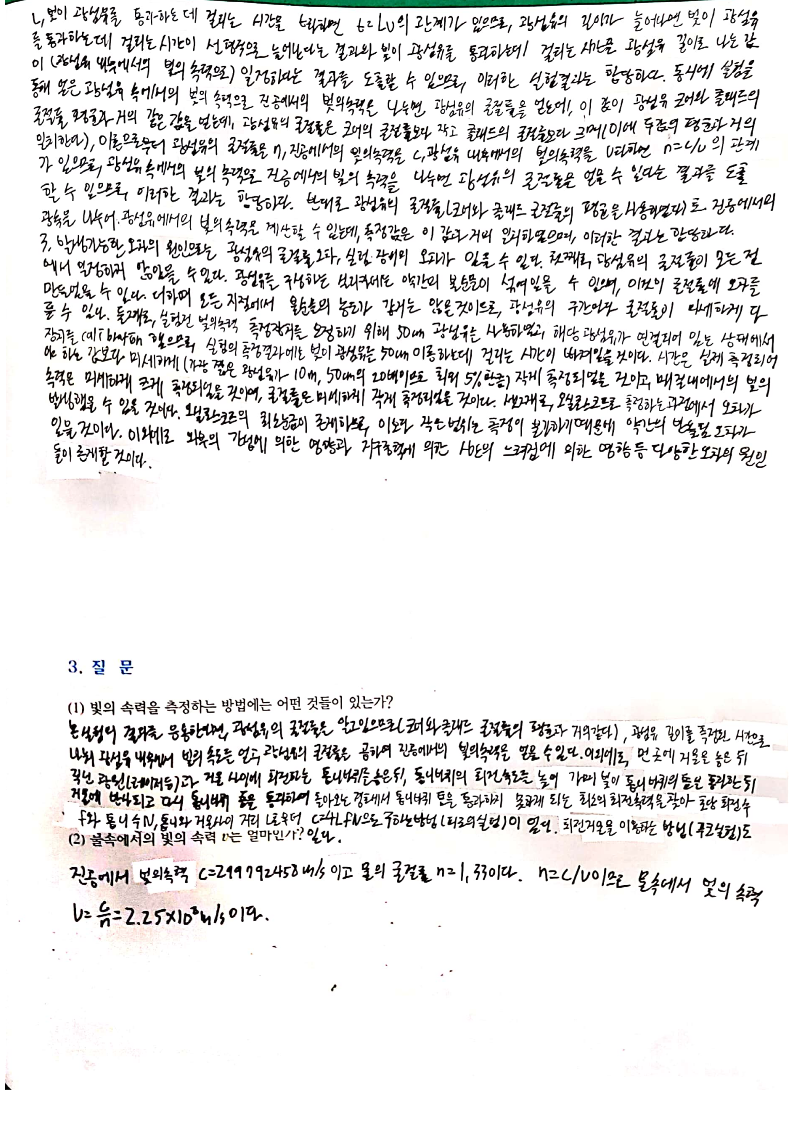 L, 빛이 광섬유를 통과하는데 걸리는 시간을 t라하면 t=L/v의 관계가 있으므로, 광섬유의 길이가 늘어나면 빛이 광섬유
를 통과하는데 걸리는 시간이 선형적으로 늘어난다는 결과와 빛이 광섬유를 통과하는데 걸리는 시간은 광섬유 길이로 나눈 값
이 (광섬유 내부에서의 빛의 속력으로) 일정하다는 결과를 도출할 수 있으므로, 이러한 실험결과는 합당하다. 동시에 실험을
통해 얻은 광섬유 속에서의 빛의 속력으로 진공에서의 빛의속력을 나누면 광섬유의 굴절률을 얻는데, 이 값이 광섬유 코어와 클래드의
굴절률 평균과 거의 같은 값을 얻는데, 광섬유의 굴절률은 코어의 굴절률보다 작고 클래드의 굴절률보다 크며(이에 두값의 평균과 거의
일치한다), 이론으로부터 광섬유의 굴절률을 n, 진공에서의 빛의속력을 c, 광섬유 내부에서의 빛의속력을 v라하면 n=c/v의 관계
가 있으므로, 광섬유 속에서의 빛의 속력으로 진공에서의 빛의 속력을 나누면 광섬유의 굴절률을 얻을 수 있다는 결과를 도출
할 수 있으므로, 이러한 결과는 합당하다. 반대로 광섬유의 굴절률(코어와 클래드 굴절률의 평균을 사용하였다)로 진공에서의
광속을 나누어 광섬유에서의 빛의속력을 계산할 수 있는데, 측정값은 이 값과 거의 일치하였으며, 이러한 결과는 합당하다.
3. 발생가능한 오차의 원인으로는 광섬유의 굴절률 오차, 실험 장비의 오차가 있을 수 있다. 첫째로, 광섬유의 굴절률이 모든 점
에서 일정하지 않았을 수 있다. 광섬유를 구성하는 유리에는 약간의 불순물이 섞여있을 수 있으며, 이것이 굴절률에 오차를
만들었을 수 있다. 더하여 모든 지점에서 불순물의 농도가 같지는 않은 것이므로, 광섬유의 구간마다 굴절률이 미세하게 다
를 수 있다. 둘째로, 실험전 빛의속력 측정장치를 보정하기 위해 50cm 광섬유를 사용하였고, 해당 광섬유가 연결되어 있는 상태에서
장치를 calibration 했으므로, 실험의 측정결과에는 빛이 광섬유를 50cm 이동하는데 걸리는 시간이 빠져있을 것이다. 시간은 실제 측정되어
야 하는 값보다 미세하게 (가장 짧은 광섬유가 10m, 50cm의 20배이므로 최대 5%만큼) 작게 측정되었을 것이고, 매질내에서의 빛의
속력은 미세하게 크게 측정되었을 것이며, 굴절률은 미세하게 작게 측정되었을 것이다. 셋째로, 오실로스코프로 측정하는과정에서 오차가
발생했을 수 있을 것이다. 오실로스코프의 최소눈금이 존재하므로, 이보다 작은 범위는 측정이 불가하기때문에 약간의 반올림 오차가
있을 것이다. 이외에도 외부의 간섭에 의한 영향과 지구중력에 의한 시간의 느려짐에 의한 영향 등 다양한 오차의 원인
들이 존재할 것이다.
3. 질 문
(1) 빛의 속력을 측정하는 방법에는 어떤 것들이 있는가?
본실험의 결과를 응용한다면, 광섬유의 굴절률은 알고있으므로(코어와 클래드 굴절률의 평균과 거의같다), 광섬유 길이를 측정된 시간으로
나눠 광섬유 내부에서 빛의 속도를 얻고, 광섬유의 굴절률을 곱하여 진공에서의 빛의속력을 얻을 수 있다. 이외에도, 먼 곳에 거울을 놓은 뒤
광원(레이저등)과 거울 사이에 회전하는 톱니바퀴를 놓은뒤, 톱니바퀴의 회전속도를 높여 가며 빛이 톱니바퀴의 틈을 통과한 뒤
거울에 반사되고 다시 톱니바퀴 틈을 통과하여 돌아오는 경로에서 톱니바퀴 틈을 통과하지 못하게 되는 최소의 회전속력을 찾아 회전수
f와 톱니수N, 톱니와 거울사이 거리 L로부터 c=4LfN으로 구하는방법(피조의실험)이 있고, 회전거울을 이용하는 방법(푸코실험)도
있다.
(2) 물속에서의 빛의 속력 v는 얼마인가?
진공에서 빛의속력 c=299792458m/s이고 물의 굴절률 n=1.33이다. n=c/v이므로 물속에서 빛의 속력
v=c/n=2.25×10⁸m/s이다.